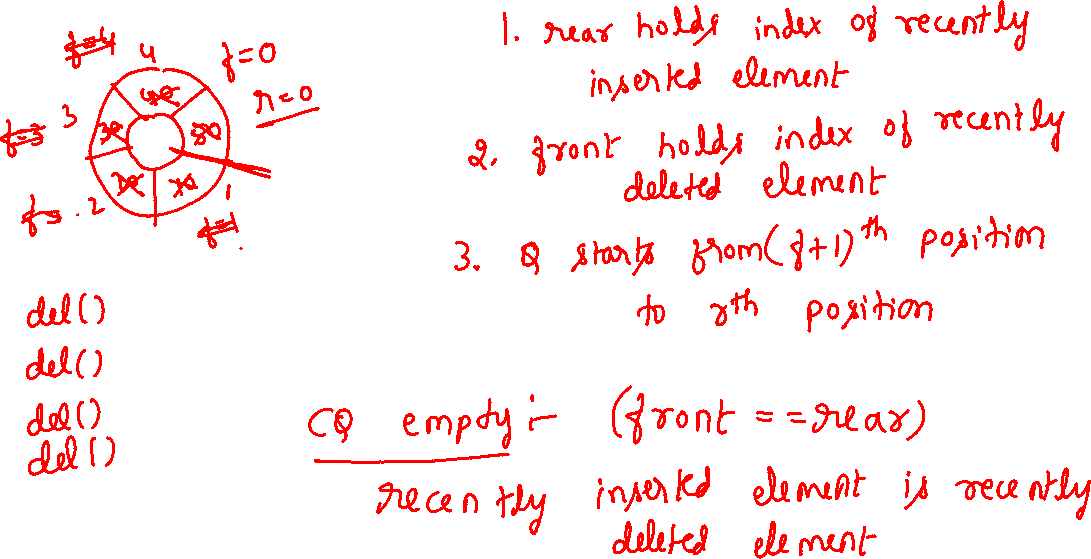 f=4
4
f=0
r=0
3
f=3
40
30
50
20
10
2
1
f=1
1. rear holds index of recently
inserted element
2. front holds index of recently
deleted element
3. Q starts from (f+1)th position
to rth position
del()
del()
del()
del()
CQ empty :- (front == rear)
recently inserted element is recently
deleted element